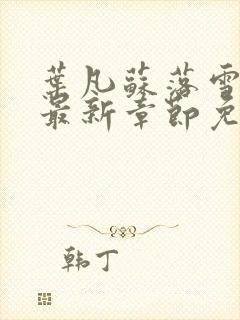 葉凡蘇落雪
最新章節免
韩丁